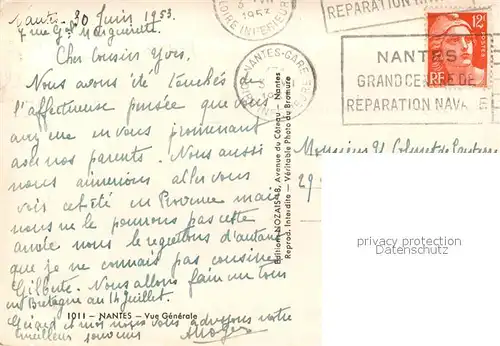 Nantes - 30 Juin 1953.
7 rue Gal Margueritte
Cher Cousin Yves,
Nous avons été touchés de
l'affectueuse pensée que vous
avez eue en vous promenant
avec nos parents. Nous aussi
nous aimerions aller vous
voir cet été en Provence mais
nous ne le pouvons pas cette
année nous le regrettons d'autant
que je ne connais pas cousine
Gilberte. Nous allons faire un tour
en Bretagne au 14 Juillet.
1011 - NANTES - Vue Générale
Gérard et moi nous vous adressons votre
meilleurs souvenirs
Edition NOZAIS 48, Avenue du Côteau - Nantes
Reprod. Interdite - Véritable Photo au Bromure
LOIRE INFERIEURE
1953
NANTES-GARE
RÉPARATION NAVALE
NANTES
GRAND CENTRE DE
RÉPARATION NAVALE
12F
RF
Monsieur
29
privacy protection
Datenschutz